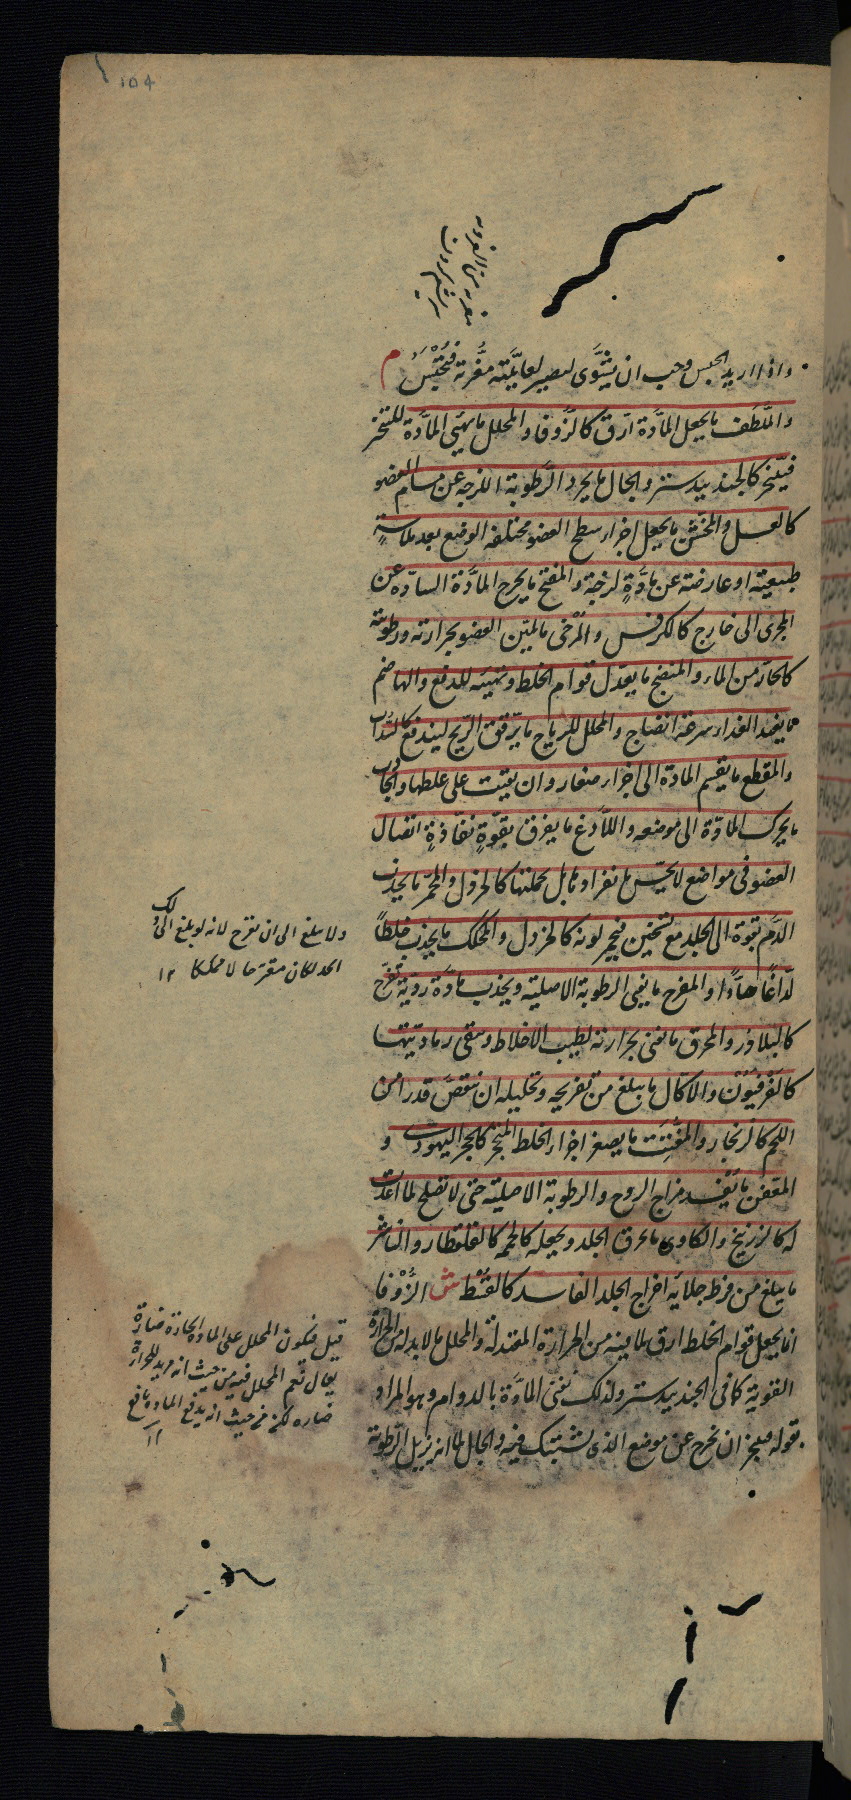 ١٥٤
واذا اريد الحبس وجب ان يشوى لتصير لعابيته مغرية فتحبس م
والملطف ما يجعل المادة ارق كالزوفا والمحلل ما يهيئ المادة للتبخر
فيتبخر كالجندبيدستر والجالى ما يجرد الرطوبة اللزجة عن مسام العضو
كالعسل والمخشن ما يجعل اجزاء سطح العضو مختلفة الوضع بعد ملاسة
طبيعية او عارضة عن مادة لزجة والمفتح ما يخرج المادة السادة عن
المجرى الى خارج كالكرفس والمرخى ما يلين العضو بحرارته ورطوبته
كالحار من الماء والمنضج ما يعدل قوام الخلط ويهيئه للدفع والهاضم
ما يفيد الغذاء سرعة انضاج والمحلل للرياح ما يرقق الريح ليندفع كالسداب
والمقطع ما يقسم المادة الى اجزاء صغار وان بقيت على غلظها والجاذب
ما يحرك المادة الى موضعه واللاذع ما يفرق بقوة نفاذة اتصال
العضو فى مواضع لا يحس بانفراد بل بجملتها كالخردل والمحمر ما يجذب
الدم بقوة الى الجلد مع تسخين فيحمر لونه كالخردل والمحكك ما يجذب خلطا
لذاعا حادا والمقرح ما يفنى الرطوبة الاصلية ويجذب مادة ردية تقرح
كالبلادر والمحرق ما يفنى بحرارته لطيف الاخلاط وتبقى رماديتها
كالفرفيون والاكال ما يبلغ من تقريحه وتحليله ان ينقص قدرا من
اللحم كالزنجار والمفتت ما يصغر اجزاء الخلط المتحجر كالحجر اليهودى و
المعفن ما يفسد مزاج الروح والرطوبة الاصلية حتى لا تصلح لما اعدت
له كالزرنيخ والكاوى ما يحرق الجلد ويجعله كالحممة كالقلقطار والقاشر
ما يبلغ من فرط جلائه اخراج الجلد الفاسد كالقسط ش الزوفا
انما يجعل قوام الخلط ارق لما فيه من الحرارة المعتدلة والمحلل ما لا بد له من الحرارة
القوية كما فى الجندبيدستر ولذلك يفنى المادة بالدوام وهو المراد
بقوله فيتبخر ان يخرج عن موضع الذى تشتبك فيه والجالى ما انه يزيل الرطوبة
ولا يبلغ الى ان يقرح لانه لو بلغ الى ذلك
الحد لكان مقرحا لا محككا ١٢
قيل فيكون المحلل على المادة الحارة ضارة
يقال نعم المحلل فيه من حيث انه مزيد للحرارة
ضاره لكن من حيث انه يدفع المادة نافع
١٢